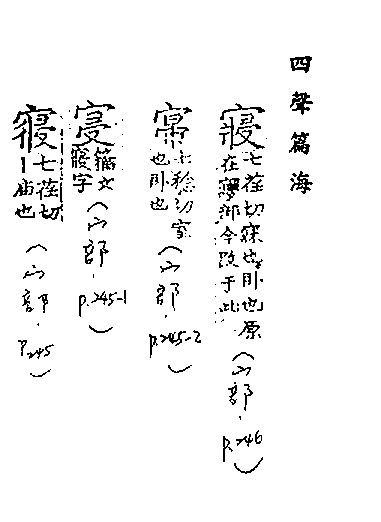 四聲篇海
寢 七荏切寐也卧也原在㝱部今改于此(宀部,p.246)
七稔切室也卧也(宀部,p.245-2)
籀文寢字(宀部,p.245-1)
七荏切丨庙也(宀部,p.245)